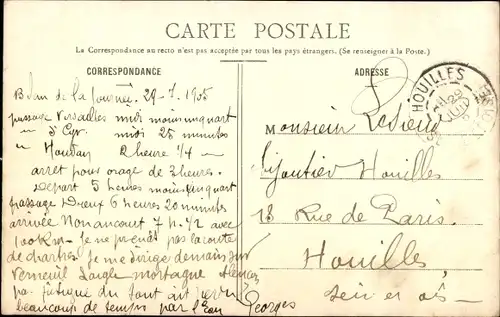 CARTE POSTALE
La Correspondance au recto n'est pas acceptée par tous les pays étrangers. (Se renseigner à la Poste.)
CORRESPONDANCE
Bilan de la journée 29-7-1905
passage Versailles midi moins un quart
" St Cyr midi 25 minutes
" Houdan 2 heure 1/4 -
arret pour orage de 3 heures.
Départ 5 heures moins un quart
passage Dreux 6 heures 20 minutes
arrivée Nonancourt 7 h. 1/2 avec
100 Km - Je ne prends pas la route
de chartres je me dirige demain sur
Verneuil Laigle mortagne Alençon
pas fatigué du tout ait perdu
beaucoup de temps par l'Eau
Georges
ADRESSE
HOUILLES
29
Monsieur Lesieur
Bijoutier Houilles
18 Rue de Paris
Houilles
Seine et Oise